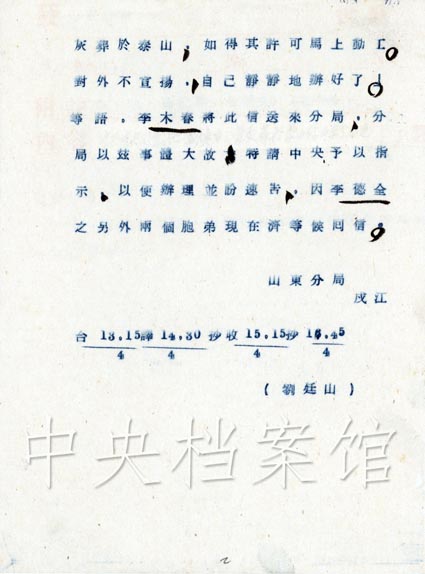 灰葬於泰山，如得其許可馬上動工
對外不宣揚，自己靜靜地辦好了！
等語。李木春將此信送來分局，分
局以茲事體大故 特請中央予以指
示，以便辦理並盼速告，因李德全
之另外兩個胞弟現在濟等候囘信。
山東分局
戌江
台 13.15/4 譯 14.30/4 抄收 15.15/4 抄 16.45/4
(劉廷山)
中央档案馆
2